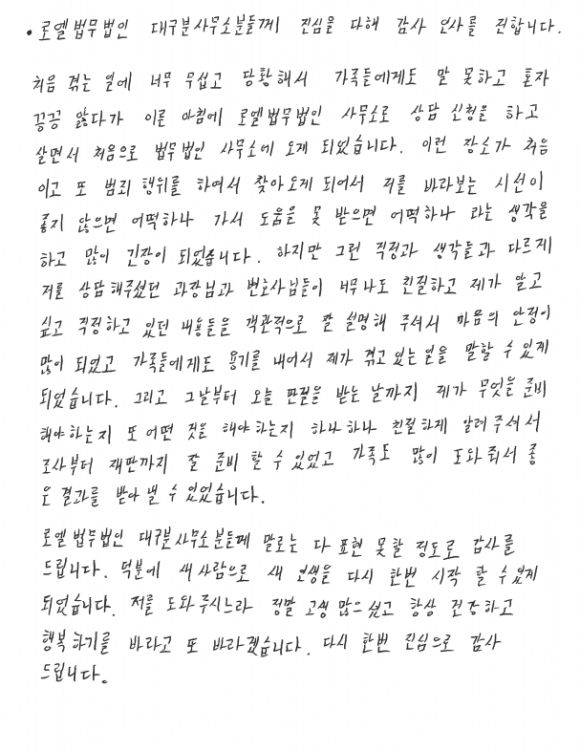 • 로엘법무법인 대구분사무소분들께 진심을 다해 감사 인사를 전합니다.
처음 겪는 일에 너무 무섭고 당황해서 가족들에게도 말 못하고 혼자
끙끙 앓다가 이른 아침에 로엘법무법인 사무소로 상담 신청을 하고
살면서 처음으로 법무법인 사무소에 오게 되었습니다. 이런 장소가 처음
이고 또 범죄 행위를 하여서 찾아오게 되어서 저를 바라보는 시선이
좋지 않으면 어떡하나 가서 도움을 못 받으면 어떡하나 라는 생각을
하고 많이 긴장이 되었습니다. 하지만 그런 걱정과 생각들과 다르게
저를 상담해주셨던 과장님과 변호사님들이 너무나도 친절하고 제가 알고
싶고 걱정하고 있던 내용들을 객관적으로 잘 설명해 주셔서 마음의 안정이
많이 되었고 가족들에게도 용기를 내어서 제가 겪고있는일을 말할 수 있게
되었습니다. 그리고 그날부터 오늘 판결을 받는 날까지 제가 무엇을 준비
해야하는지 또 어떤 것을 해야하는지 하나하나 친절하게 알려주셔서
조사부터 재판까지 잘 준비 할 수 있었고 가족도 많이 도와줘서 좋
은 결과를 받아낼 수 있었습니다.
로엘법무법인 대구분사무소분들께 말로는 다 표현 못할 정도로 감사를
드립니다. 덕분에 새사람으로 새 인생을 다시 한번 시작 할 수있게
되었습니다. 저를 도와주시느라 정말 고생 많으셨고 항상 건강하고
행복하기를 바라고 또 바라겠습니다. 다시 한번 진심으로 감사
드립니다.